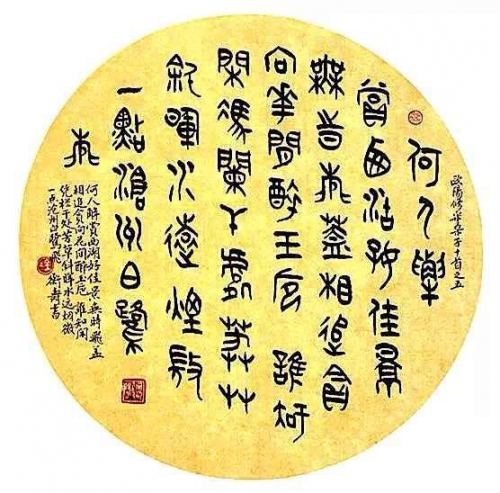 欧陽修采桑子十首之五
何人解
賞西湖好佳景
無時飛蓋相追貪
向花間醉玉卮誰知
閑憑闌干處芳艸
斜暉水遠煙微
一點滄州白鷺
飛
何人解賞西湖好佳景無時飛蓋
相追貪向花间醉玉卮誰知闲
凭栏干处芳草斜晖水远烟微
一点沧州白鹭飛